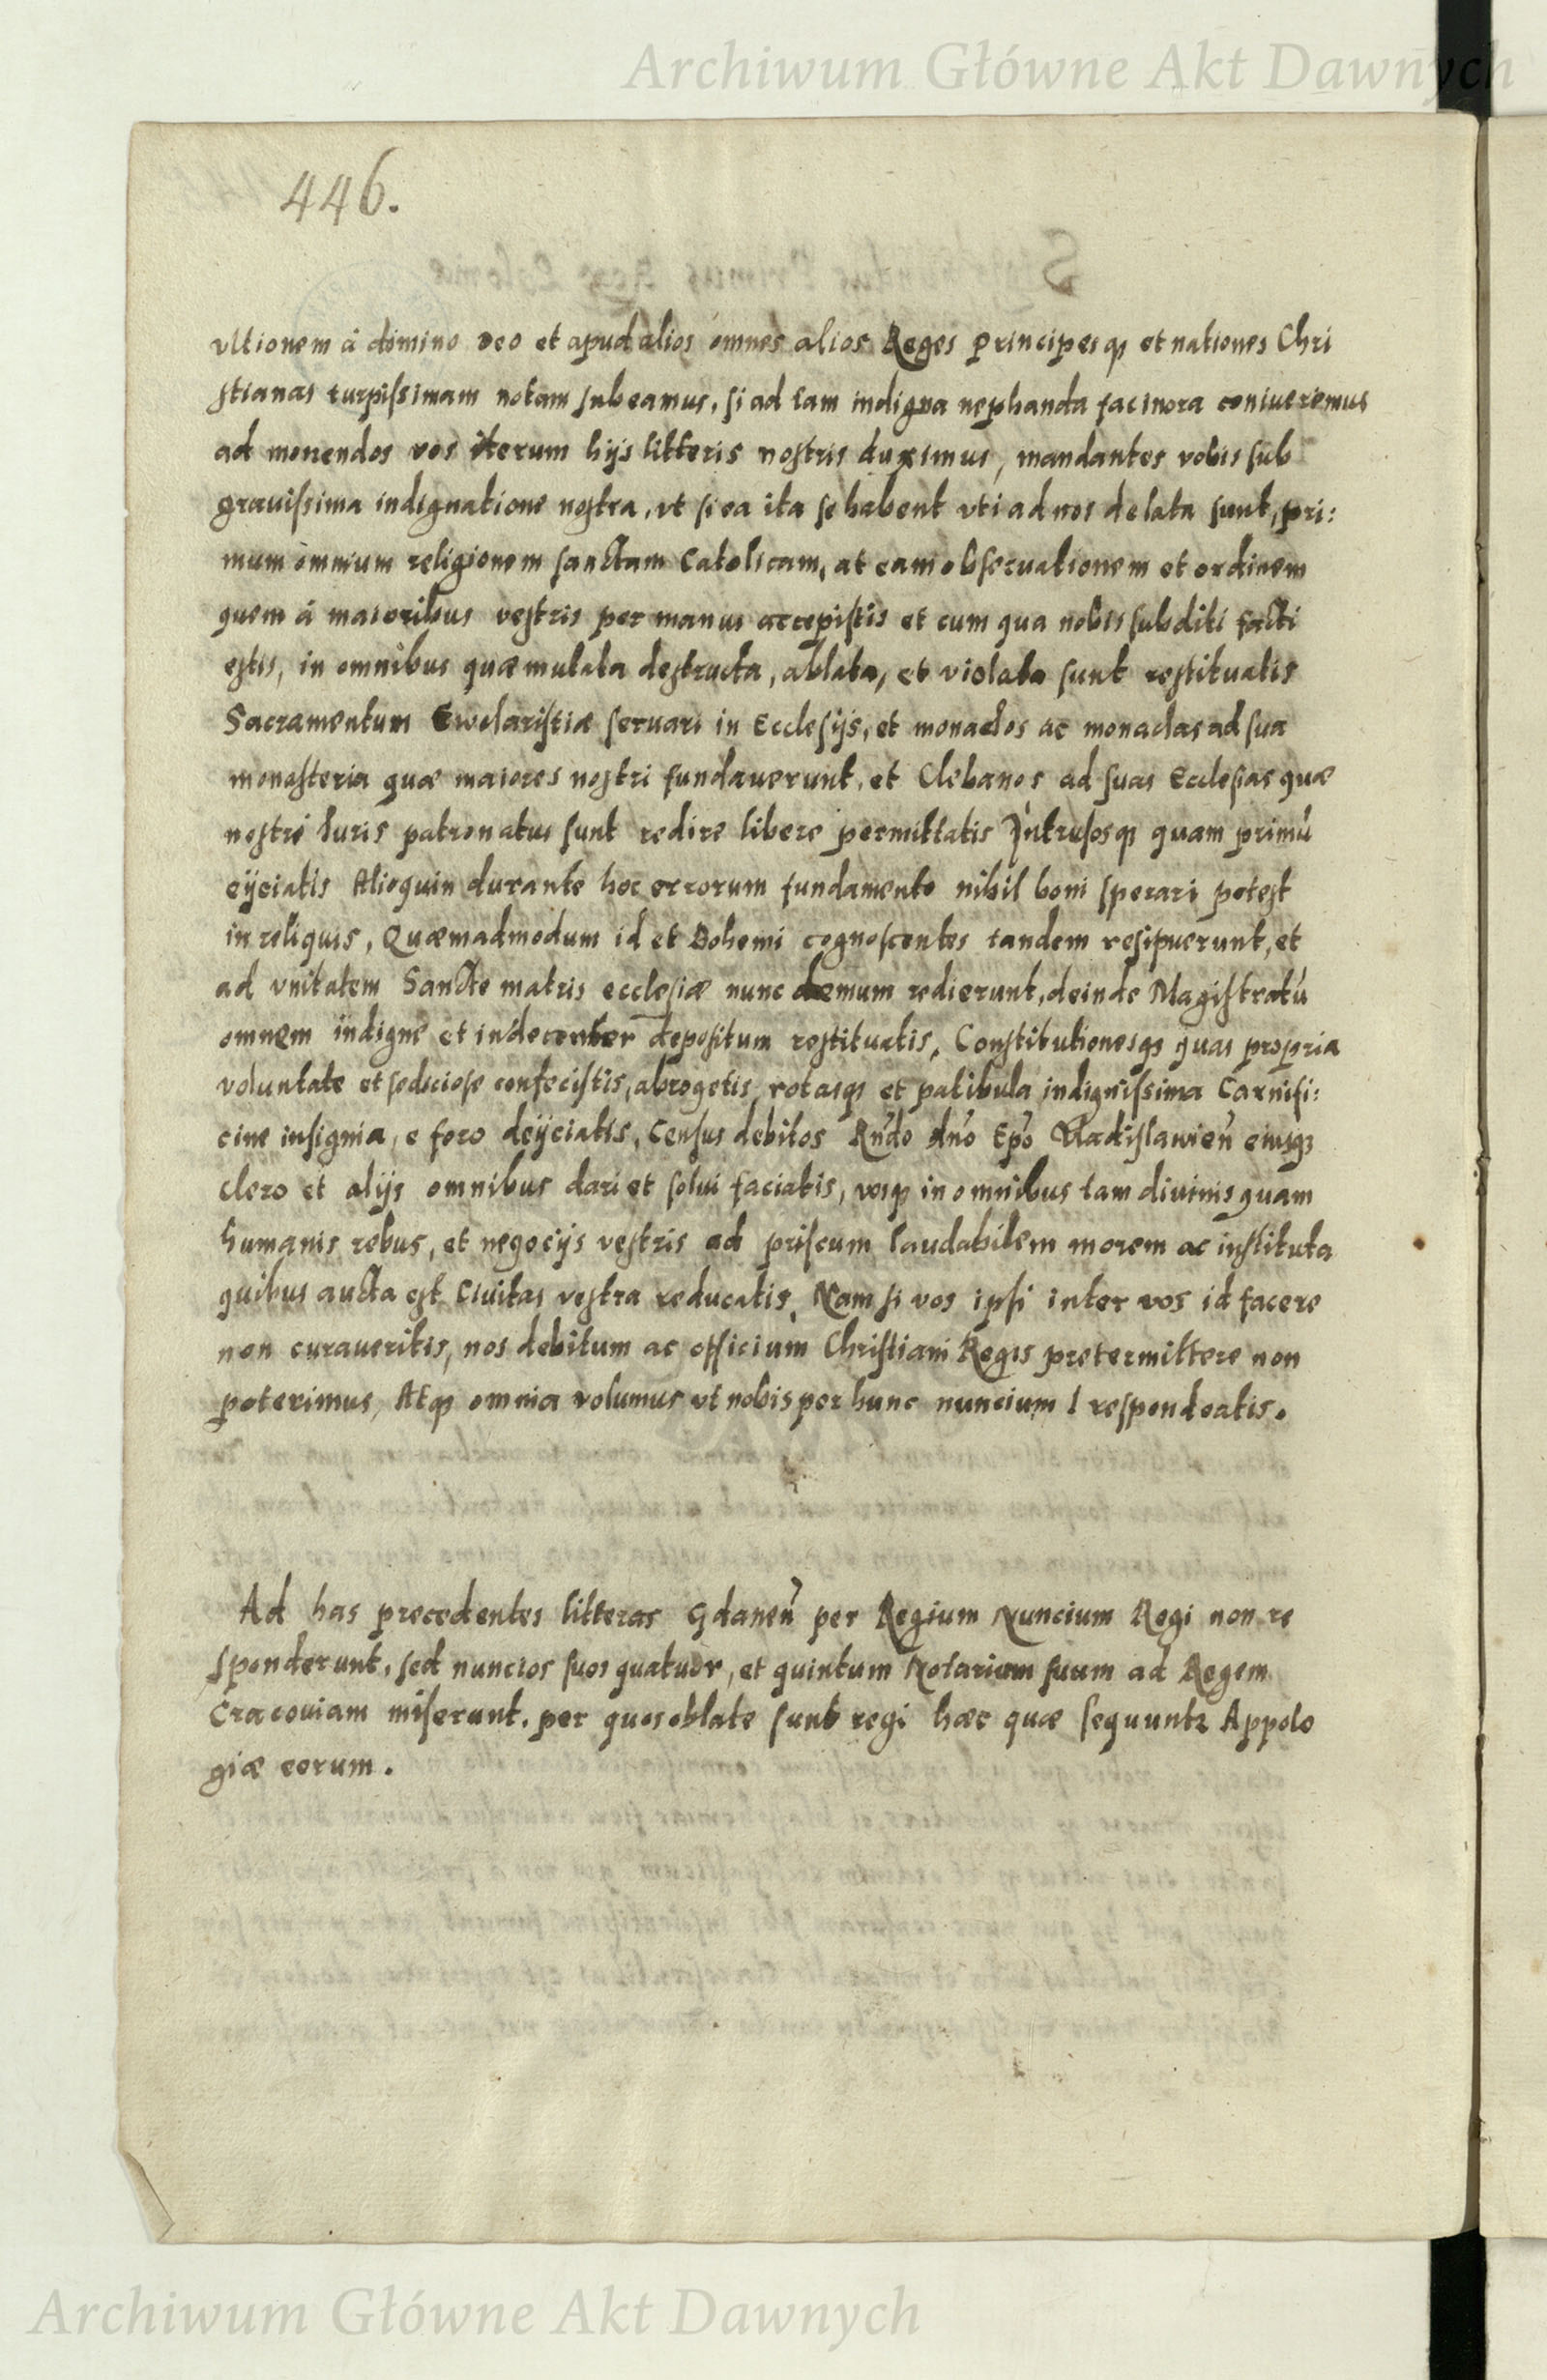 Archiwum Główne Akt Dawnych
446.
vltionem à domino deo et apud alios omnes alios Reges principesq; et nationes Chri
stianas turpissimam notam subeamus, si ad tam indigna nephanda facinora coniueremus
ad monendos vos iterum hijs litteris nostris duximus, mandantes vobis sub
grauissima indignatione nostra, vt si ea ita se habent vti ad nos delata sunt, pri:
mum omnium religionem sanctam Catolicam, at eam obseruationem et ordinem
quem á maioribus vestris per manus accepistis et cum qua nobis subditi facti
estis, in omnibus quæ mutata destructa, ablata, et violata sunt restituatis
Sacramentum Ewcharistiæ seruari in Ecclesijs, et monachos ac monachas ad sua
monasteria quæ maiores nostri fundauerunt, et Plebanos ad suas Ecclesias quæ
nostri Iuris patronatus sunt redire libere permittatis Intrusosq; quam primū
eijciatis Alioquin durante hoc errorum fundamento nihil boni sperari potest
in reliquis, Quæmadmodum id et Bohemi cognoscentes tandem resipuerunt, et
ad vnitatem Sancte matris ecclesiæ nunc demum redierunt, deinde Magistratū
omnem indigne et indecenter depositum restituatis, Constitutionesq; quas propria
voluntate et sediciose confecistis, abrogetis, rotasq; et patibula indignissima Carnifi:
cine insignia, e foro deijciatis, Census debitos Rn̄do dn̄o Ep̄o Vladislauien̄ eiusq;
clero et alijs omnibus dari et solui faciatis, vosq; in omnibus tam diuinis quam
humanis rebus, et negocijs vestris ad priscum laudabilem morem ac instituta
quibus aucta est Ciuitas vestra reducatis, Nam si vos ipsi inter vos id facere
non curaueritis, nos debitum ac officium Christiani Regis pretermittere non
poterimus, Atq; omnia volumus vt nobis per hunc nuncium l respondeatis.
Ad has precedentes litteras Gdanen̄ per Regium Nuncium Regi non re
sponderunt, sed nuncios suos quatuor, et quintum Notarium suum ad Regem
Cracouiam miserunt, per quos oblate sunt regi hæc quæ sequuntr Appolo
giæ eorum.
Archiwum Główne Akt Dawnych